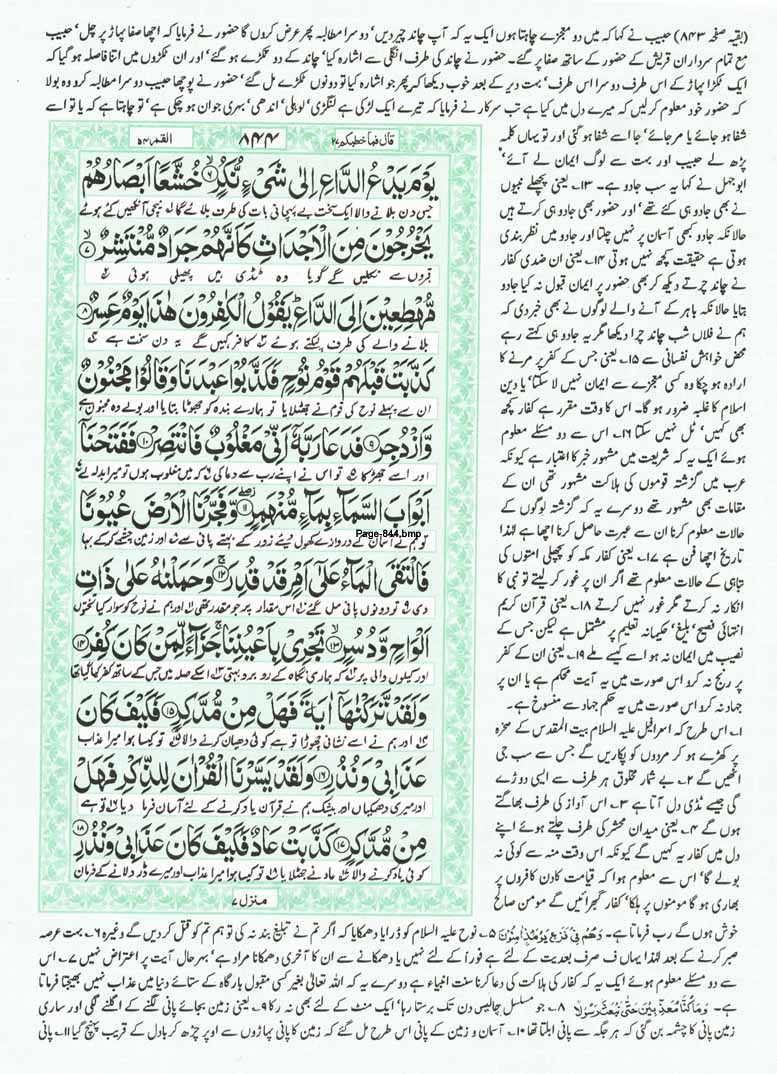 (بقیہ صفحہ ۸۴۳) حبیب نے کہا کہ میں دو معجزے چاہتا ہوں ایک یہ کہ آپ چاند چیر دیں' دوسرا مطالبہ پھر عرض کروں گا حضور نے فرمایا کہ اچھا صفا پہاڑ پر چل' حبیب
مع تمام سرداران قریش کے حضور کے ساتھ صفا پر گئے۔ حضور نے چاند کی طرف انگلی سے اشارہ کیا' چاند کے دو ٹکڑے ہو گئے' اور ان ٹکڑوں میں اتنا فاصلہ ہو گیا کہ
ایک ٹکڑا پہاڑ کے اس طرف دوسرا اس طرف' بہت دیر کے بعد خوب دیکھا کہ پھر جو اشارہ کیا تو دونوں ٹکڑے مل گئے' حضور نے پوچھا حبیب دوسرا مطالبہ کرو وہ بولا
کہ حضور خود معلوم کرلیں کہ میرے دل میں کیا ہے تب سرکار نے فرمایا کہ تیرے ایک لڑکی ہے لنگڑی' لولی' اندھی' بہری جوان ہو چکی ہے' تو چاہتا ہے کہ یا تو اسے
شفا ہو جائے یا مر جائے' جا اسے شفا ہو گئی اور تو یہاں کلمہ
پڑھ لے حبیب اور بہت سے لوگ ایمان لے آئے'
ابوجہل نے کہا یہ سب جادو ہے۔ ۱۳۔ یعنی پچھلے نبیوں
نے بھی جادو ہی کئے تھے' اور حضور بھی جادو ہی کرتے ہیں
حالانکہ جادو کبھی آسمان پر نہیں چلتا اور جادو میں نظر بندی
ہوتی ہے حقیقت کچھ نہیں ہوتی ۱۴۔ یعنی ان ضدی کفار
نے چاند چرتے دیکھ کر بھی حضور پر ایمان قبول نہ کیا جادو
بتایا حالانکہ باہر کے آنے والے لوگوں نے بھی خبر دی کہ
ہم نے فلاں شب چاند چرا دیکھا مگر یہ جادو ہی کہتے رہے
محض خواہش نفسانی سے ۱۵۔ یعنی جس کے کفر پر مرنے کا
ارادہ ہو چکا وہ کسی معجزے سے ایمان نہیں لا سکتا' یا دین
اسلام کا غلبہ ضرور ہو گا۔ اس کا وقت مقرر ہے کفار کچھ
بھی کہیں' ٹل نہیں سکتا ۱۶۔ اس سے دو مسئلے معلوم
ہوئے ایک یہ کہ شریعت میں مشہور خبر کا اعتبار ہے کیونکہ
عرب میں گزشتہ قوموں کی ہلاکت مشہور تھی ان کے
مقامات بھی مشہور تھے دوسرے یہ کہ گزشتہ لوگوں کے
حالات معلوم کرنا ان سے عبرت حاصل کرنا اچھا ہے لہذا
تاریخ اچھا فن ہے ۱۷۔ یعنی کفار مکہ کو پچھلی امتوں کی
تباہی کے حالات معلوم تھے اگر ان پر غور کر لیتے تو نبی کا
انکار نہ کرتے مگر غور نہیں کرتے ۱۸۔ یعنی قرآن کریم
انتہائی فصیح' بلیغ' حکیمانہ تعلیم پر مشتمل ہے لیکن جس کے
نصیب میں ایمان نہ ہو اسے کیسے ملے ۱۹۔ یعنی ان کے کفر
پر رنج نہ کرو اس صورت میں یہ آیت محکم ہے یا ان پر
جہاد نہ کرو اس صورت میں یہ حکم جہاد سے منسوخ ہے۔
۱۔ اس طرح کہ اسرافیل علیہ السلام بیت المقدس کے صخرہ
پر کھڑے ہو کر مردوں کو پکاریں گے جس سے سب جی
اٹھیں گے ۲۔ بے شمار مخلوق ہر طرف سے ایسی دوڑے
گی جیسے ٹڈی دل آتا ہے ۳۔ اس آواز کی طرف بھاگتے
ہوں گے ۴۔ یعنی میدان محشر کی طرف چلتے ہوئے اپنے
دل میں کفار یہ کہیں گے کیونکہ اس وقت منہ سے کوئی نہ
بولے گا' اس سے معلوم ہوا کہ قیامت کا دن کافروں پر
بھاری ہو گا مومنوں پر ہلکا' کفار گھبرائیں گے مومن صالح
قال فما خطبکم ۲۷
۸۴۴
القمر ۵۴
يَوْمَ يَدْعُ الدَّاعِ إِلَىٰ شَيْءٍ نُّكُرٍ ۶ خُشَّعًا أَبْصَارُهُمْ
جس دن بلانے والا ایک سخت بے پہچانی بات کی طرف بلائے گا نیچی آنکھیں کئے ہوئے
يَخْرُجُونَ مِنَ الْأَجْدَاثِ كَأَنَّهُمْ جَرَادٌ مُّنتَشِرٌ ۷
قبروں سے نکلیں گے گویا وہ ٹڈی ہیں پھیلی ہوئی
مُّهْطِعِينَ إِلَى الدَّاعِ يَقُولُ الْكَافِرُونَ هَٰذَا يَوْمٌ عَسِرٌ ۸
بلانے والے کی طرف لپکتے ہوئے کافر کہیں گے یہ دن سخت ہے
كَذَّبَتْ قَبْلَهُمْ قَوْمُ نُوحٍ فَكَذَّبُوا عَبْدَنَا وَقَالُوا مَجْنُونٌ
ان سے پہلے نوح کی قوم نے جھٹلایا تو ہمارے بندہ کو جھوٹا بتایا اور بولے وہ مجنون ہے
وَّازْدُجِرَ ۹ فَدَعَا رَبَّهُ أَنِّي مَغْلُوبٌ فَانتَصِرْ ۱۰ فَفَتَحْنَا
اور اسے جھڑکا تو اس نے اپنے رب سے دعا کی کہ میں مغلوب ہوں تو میرا بدلہ لے
أَبْوَابَ السَّمَاءِ بِمَاءٍ مُّنْهَمِرٍ ۱۱ وَفَجَّرْنَا الْأَرْضَ عُيُونًا
تو ہم نے آسمان کے دروازے کھول دیئے زور کے بہتے پانی سے اور زمین چشمے کر کے بہا
Page-844.bmp
فَالْتَقَى الْمَاءُ عَلَىٰ أَمْرٍ قَدْ قُدِرَ ۱۲ وَحَمَلْنَاهُ عَلَىٰ ذَاتِ
دی تو دونوں پانی مل گئے اس مقدار پر جو مقدر تھی اور ہم نے نوح کو سوار کیا تختوں
أَلْوَاحٍ وَدُسُرٍ ۱۳ تَجْرِي بِأَعْيُنِنَا جَزَاءً لِّمَن كَانَ كُفِرَ ۱۴
اور کیلوں والی پر کہ ہماری نگاہ کے روبرو بہتی اسکے صلہ میں جس کے ساتھ کفر کیا گیا تھا
وَلَقَد تَّرَكْنَاهَا آيَةً فَهَلْ مِن مُّدَّكِرٍ ۱۵ فَكَيْفَ كَانَ
اور ہم نے اسے نشانی چھوڑا تو ہے کوئی دھیان کرنے والا تو کیسا ہوا میرا عذاب
عَذَابِي وَنُذُرِ ۱۶ وَلَقَدْ يَسَّرْنَا الْقُرْآنَ لِلذِّكْرِ فَهَلْ
اور میری دھمکیاں اور بیشک ہم نے قرآن یاد کرنے کے لئے آسان فرما دیا تو ہے
مِن مُّدَّكِرٍ ۱۷ كَذَّبَتْ عَادٌ فَكَيْفَ كَانَ عَذَابِي وَنُذُرِ ۱۸
کوئی یاد کرنے والا عاد نے جھٹلایا تو کیسا ہوا میرا عذاب اور میرے ڈر دلانے کے فرمان
منزل ۷
خوش ہوں گے رب فرماتا ہے۔ وَهُم مِّن فَزَعٍ يَوْمَئِذٍ آمِنُونَ ۵۔ نوح علیہ السلام کو ڈرایا دھمکایا کہ اگر تم نے تبلیغ بند نہ کی تو ہم تم کو قتل کر دیں گے وغیرہ ۶۔ بہت عرصہ
صبر کرنے کے بعد لہذا یہاں ف صرف بعدیت کے لئے ہے فورا" کے لئے نہیں یا دھمکانے سے ان کا آخری دھمکانا مراد ہے' بہرحال آیت پر اعتراض نہیں ۷۔ اس
سے دو مسئلے معلوم ہوئے ایک یہ کہ کفار کی ہلاکت کی دعا کرنا سنت انبیاء ہے دوسرے یہ کہ اللہ تعالیٰ بغیر کسی مقبول بارگاہ کے ستائے دنیا میں عذاب نہیں بھیجتا فرماتا
ہے۔ وَمَا كُنَّا مُعَذِّبِينَ حَتَّىٰ نَبْعَثَ رَسُولًا ۸۔ جو مسلسل چالیس دن تک برستا رہا' ایک منٹ کے لئے بھی نہ رکا ۹۔ یعنی زمین بجائے پانی نگلنے کے اگلنے لگی اور ساری
زمین پانی کا چشمہ بن گئی کہ ہر جگہ سے پانی ابلتا تھا ۱۰۔ آسمان و زمین کے پانی اس طرح مل گئے کہ زمین کا پانی پہاڑوں سے اوپر چڑھ کر بادل کے قریب پہنچ گیا ۱۱۔ پانی